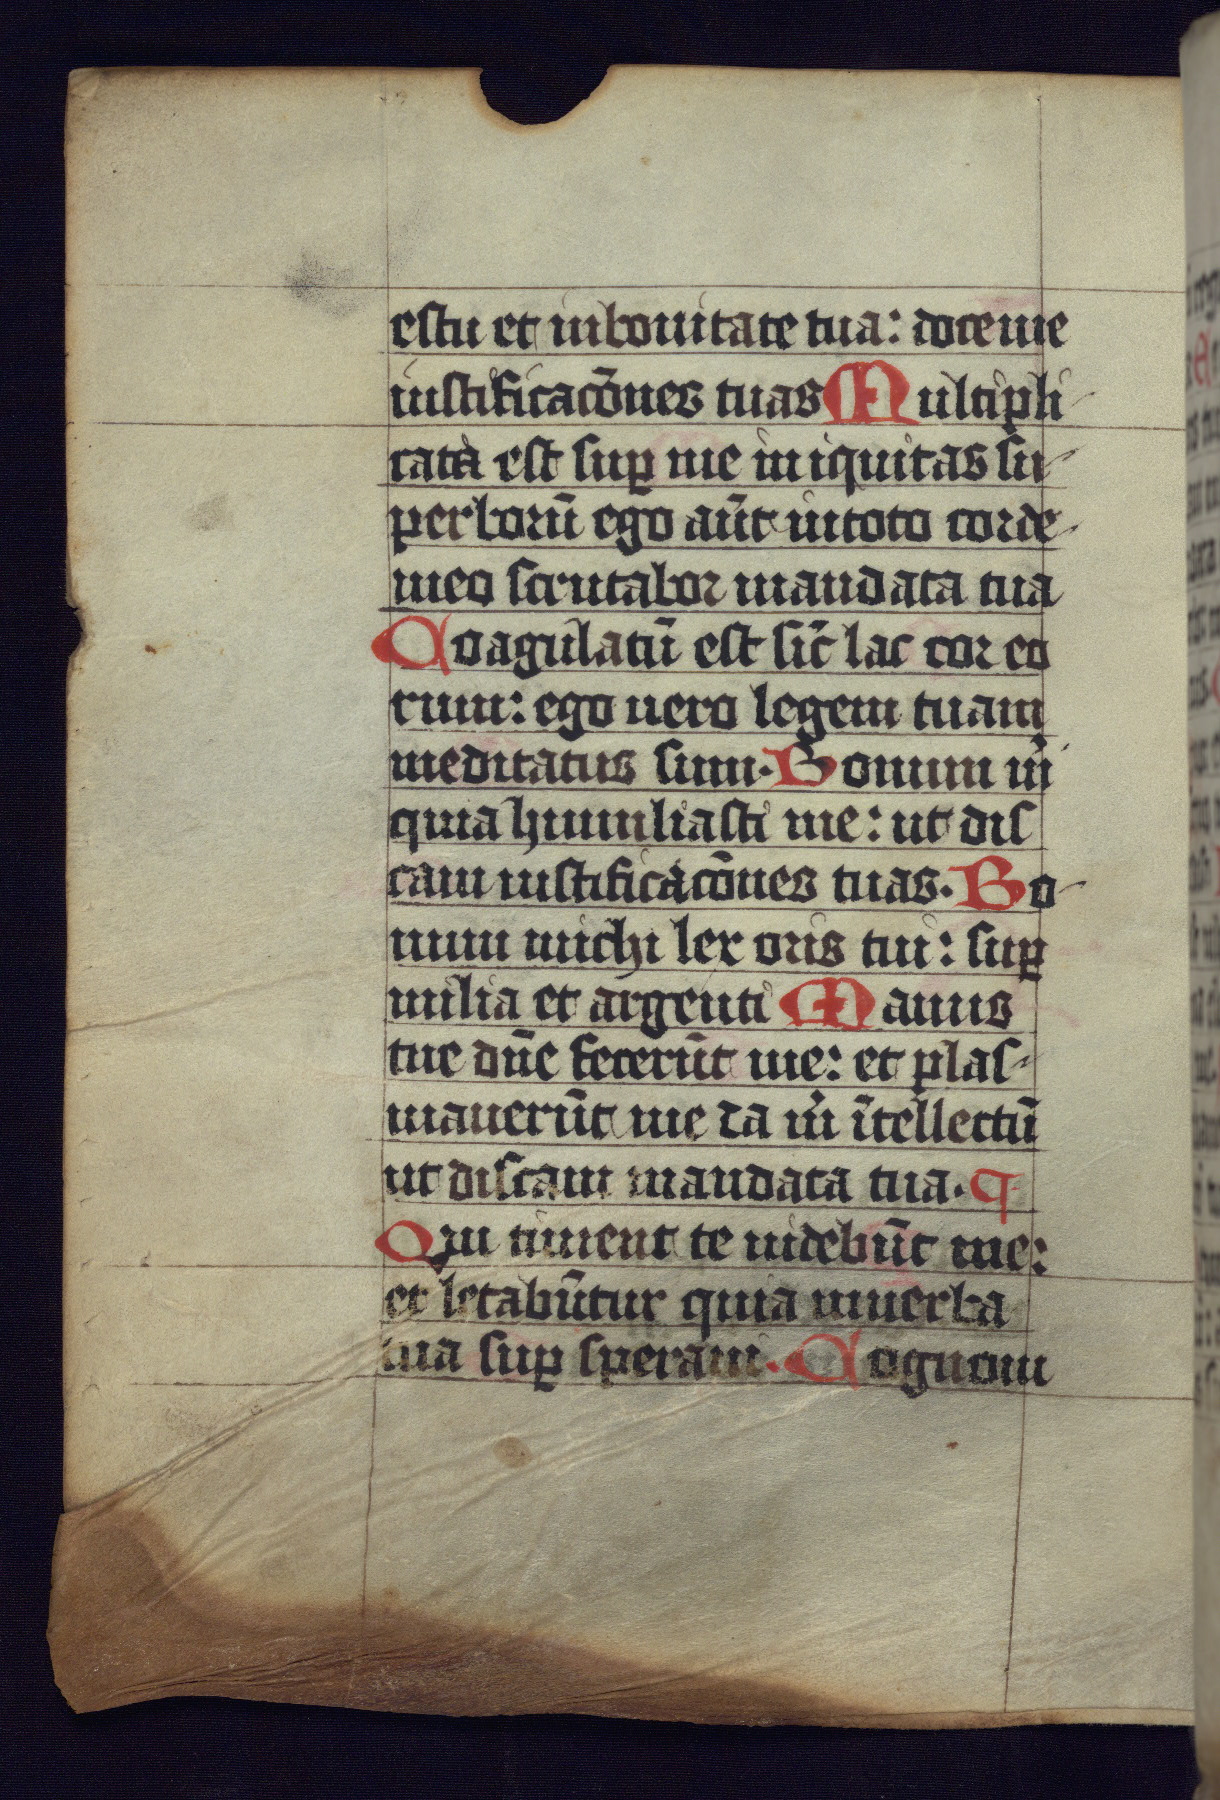 estu et inbonitate tua: doceme
iustificacōnes tuas Multipli
cata est suꝑ me iniquitas su
perborū ego aūt intoto corde
meo scrutabor mandata tua
Coagulatū est sic̄ lac cor eo
rum: ego uero legem tuam
meditatus sum. Bonum m̄
quia humiliasti me: ut dis
cam iustificacōnes tuas. Bo
num michi lex oris tui: suꝑ
milia et argenti Manus
tue dn̄e fecerūt me: et plas
mauerūt me da m̄ ītellectū
ut discam mandata tua. ¶
Qui timent te uidebūt me:
et letabūtur quia inuerba
tua suꝑ speraui. Cognoui